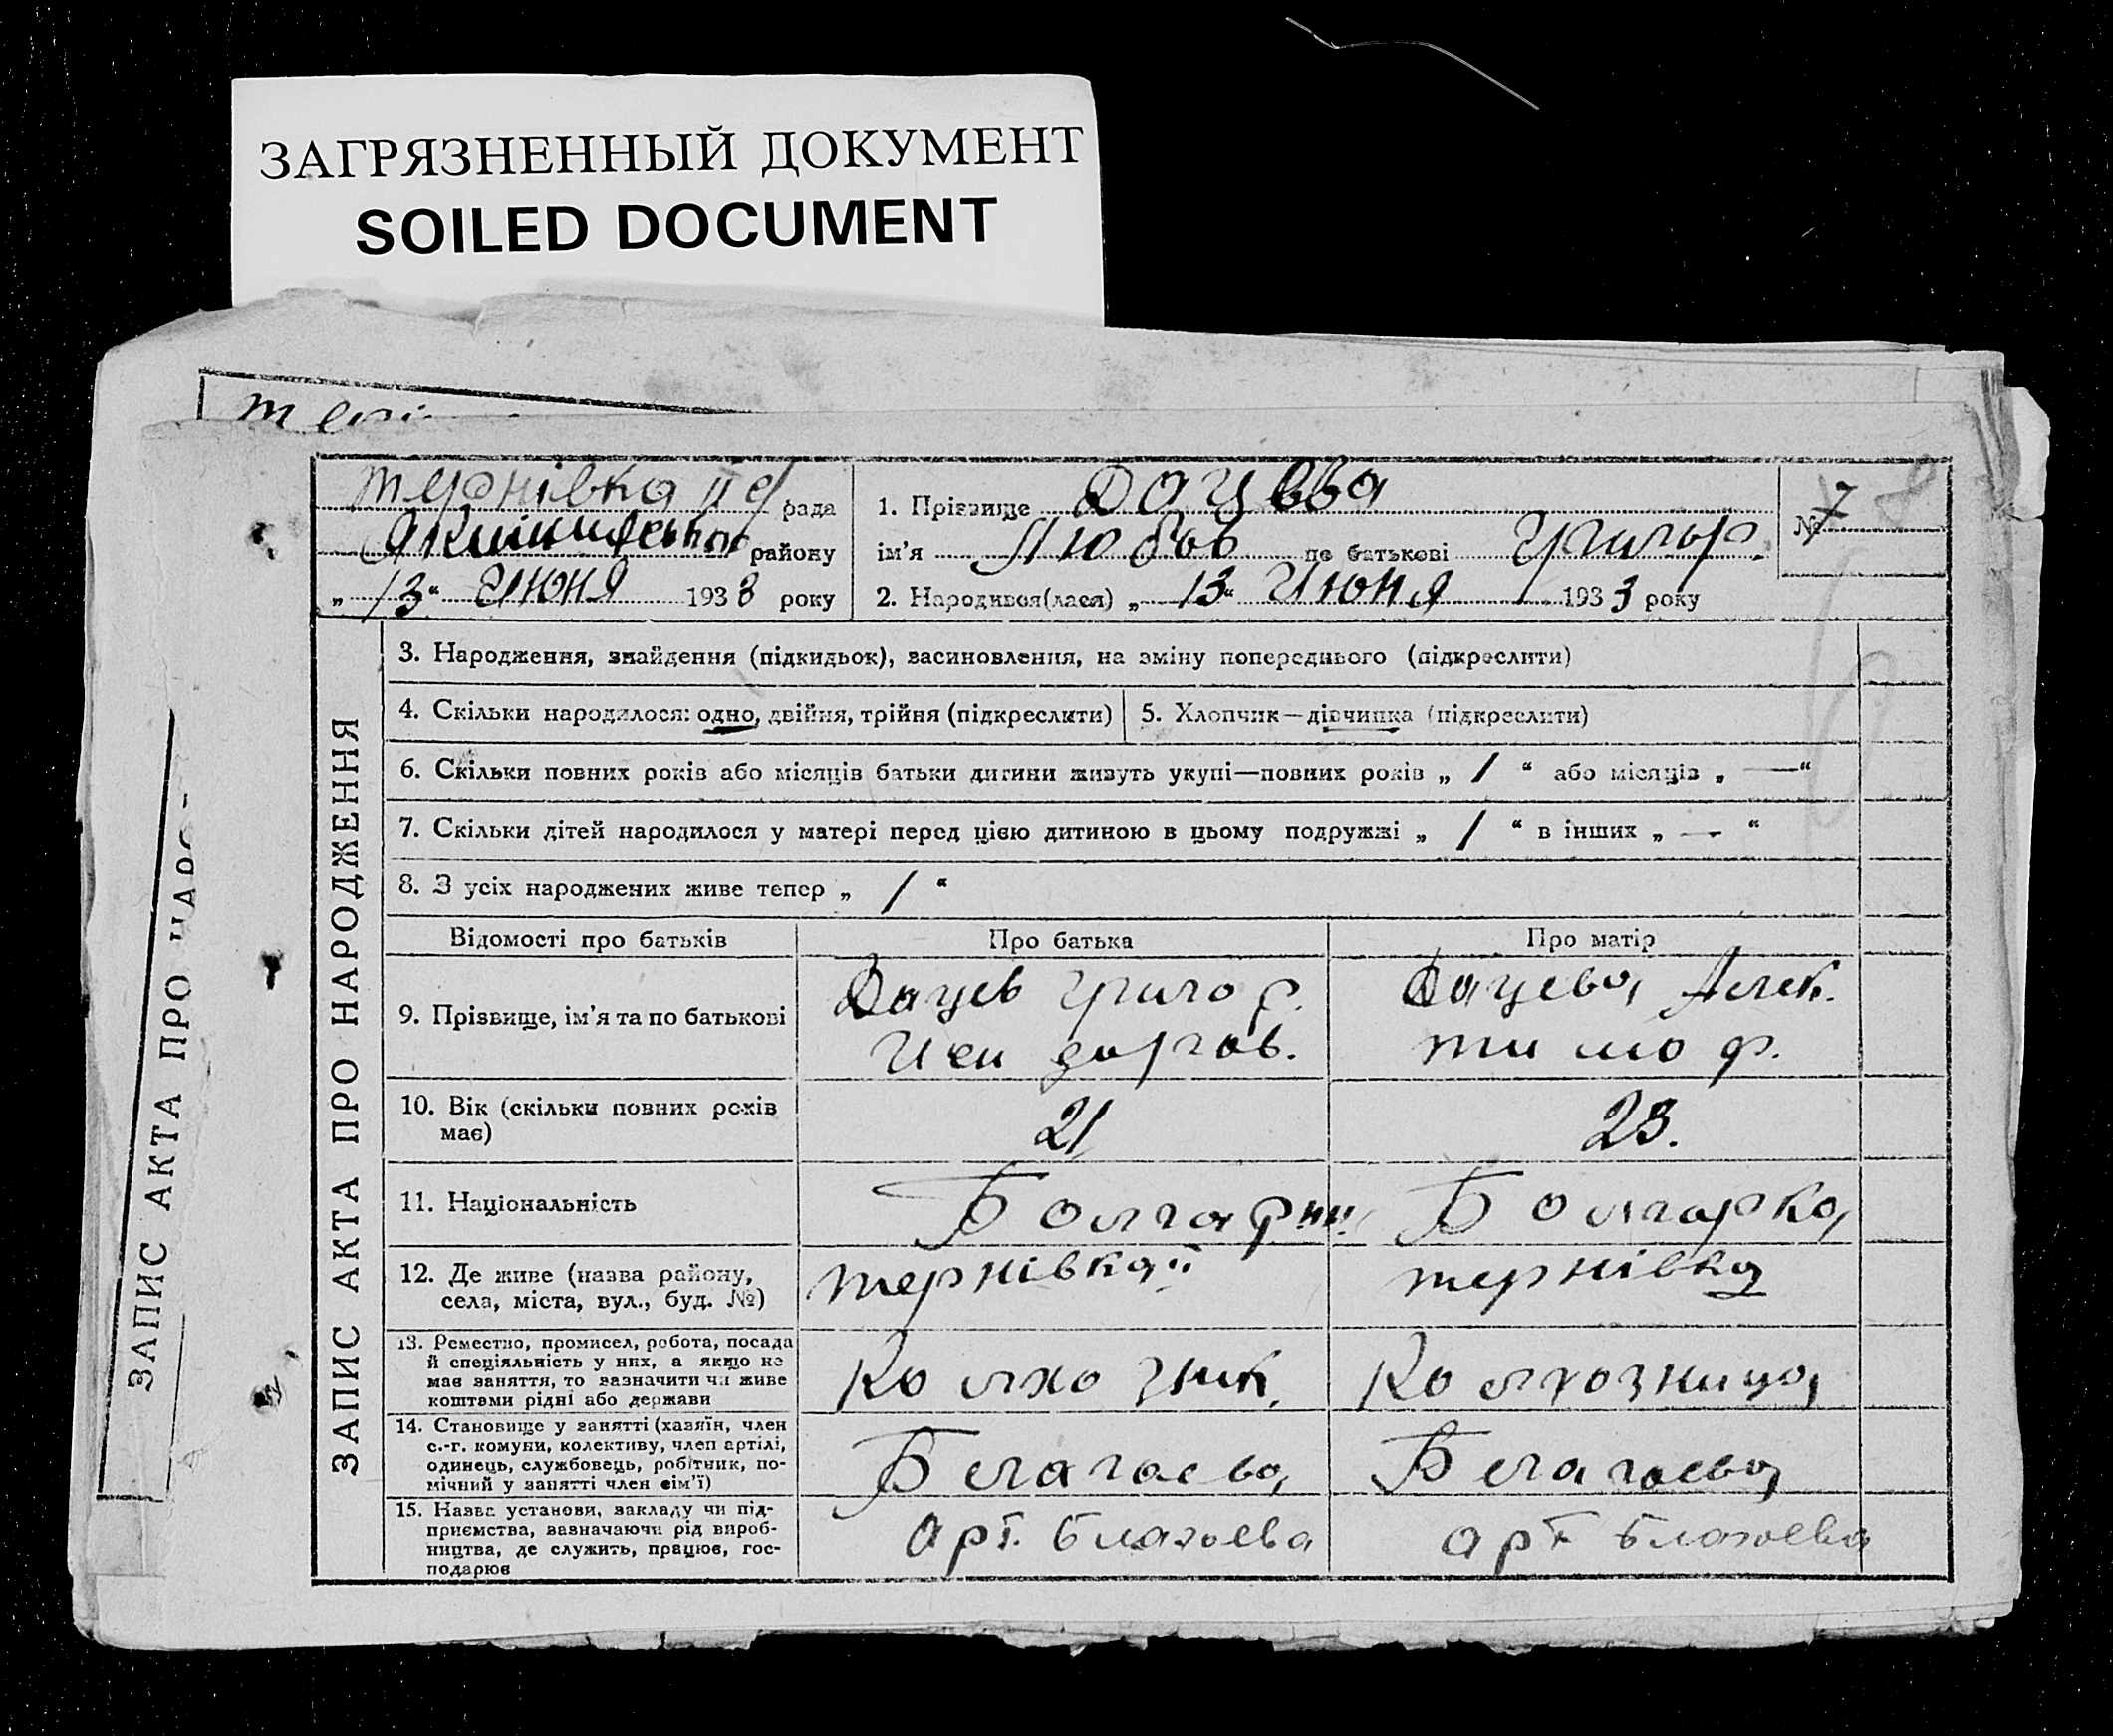 ЗАГРЯЗНЕННЫЙ ДОКУМЕНТ
SOILED DOCUMENT
Тернівка ІІ рада
Якимівськ району
„ 13 “ Июня 1933 року
1. Прізвище Дацева
ім'я Любов по батькові Григор.
2. Народився(лася) „ 13 “ Июня 1933 року
№ 7 8
ЗАПИС АКТА ПРО НАРОДЖЕННЯ
3. Народження, знайдення (підкидьок), засиновлення, на зміну попереднього (підкреслити)
4. Скільки народилося: одно, двійня, трійня (підкреслити)
5. Хлопчик—дівчинка (підкреслити)
6. Скільки повних років або місяців батьки дитини живуть укупі—повних років „ 1 “ або місяців „ — “
7. Скільки дітей народилося у матері перед цією дитиною в цьому подружжі „ 1 “ в інших „ — “
8. З усіх народжених живе тепер „ 1 “
Відомості про батьків
Про батька
Про матір
9. Прізвище, ім'я та по батькові
Дацев Григор.
Дацева Алек.
Тимоф.
10. Вік (скільки повних років
має)
21
23.
11. Національність
Болгарин
Болгарка
12. Де живе (назва району,
села, міста, вул., буд. №)
Тернівка ІІ
Тернівка
13. Ремество, промисел, робота, посада
й спеціяльність у них, а якщо не
має заняття, то зазначити чи живе
коштами рідні або держави
Колхозник.
Колхозница
14. Становище у занятті (хазяїн, член
с.-г. комуни, колективу, член артілі,
одинець, службовець, робітник, по-
мічний у занятті член сім'ї)
Благаева
Благаева
15. Назва установи, закладу чи під-
приємства, зазначаючи рід вироб-
ництва, де служить, працює, гос-
подарює
Арт. Благоева
арт Благоева
ЗАПИС АКТА ПРО НАРО